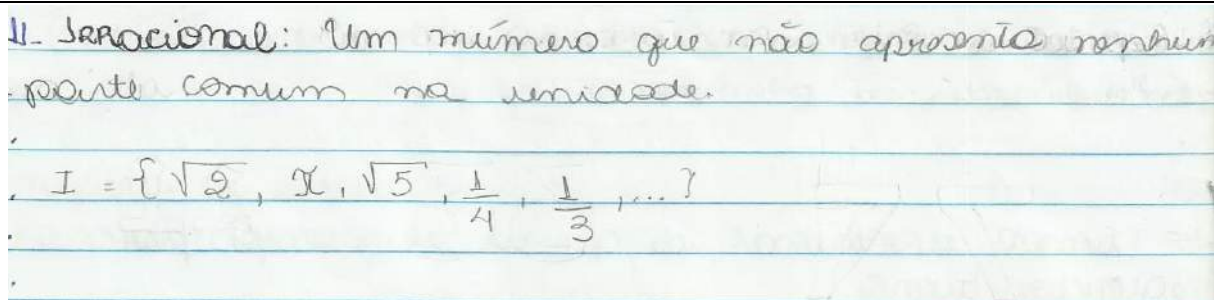 11- Irracional: Um número que não apresenta nenhum
parte comum na unidade.
I = {√2, π, √5, 1/4, 1/3, ...}